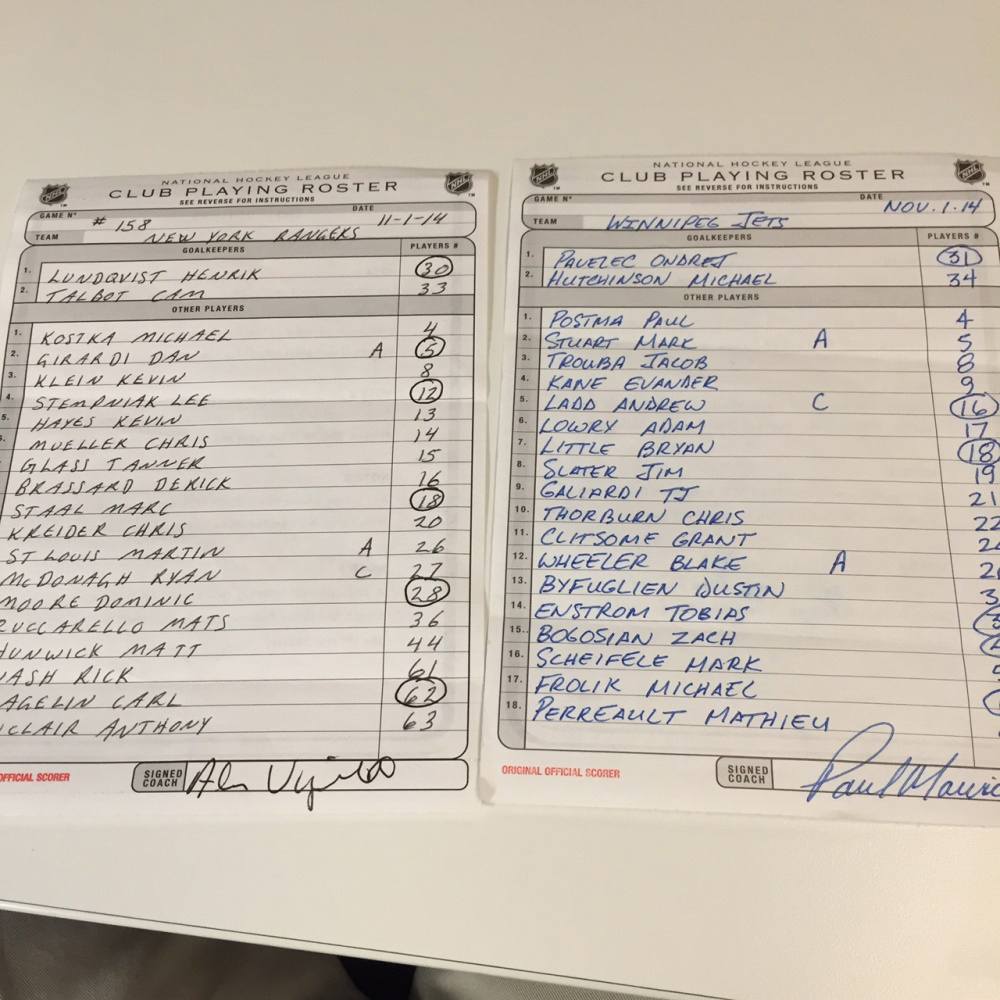 NATIONAL HOCKEY LEAGUE
CLUB PLAYING ROSTER
SEE REVERSE FOR INSTRUCTIONS
GAME N° # 158 DATE 11-1-14
TEAM NEW YORK RANGERS
GOALKEEPERS PLAYERS #
1. LUNDQVIST HENRIK 30
2. TALBOT CAM 33
OTHER PLAYERS
1. KOSTKA MICHAEL 4
2. GIRARDI DAN A 5
3. KLEIN KEVIN 8
4. STEMPNIAK LEE 12
5. HAYES KEVIN 13
MUELLER CHRIS 14
GLASS TANNER 15
BRASSARD DERICK 16
STAAL MARC 18
KREIDER CHRIS 20
ST LOUIS MARTIN A 26
MCDONAGH RYAN C 27
MOORE DOMINIC 28
ZUCCARELLO MATS 36
HUNWICK MATT 44
NASH RICK 61
AGELIN CARL 62
CLAIR ANTHONY 63
OFFICIAL SCORER
SIGNED COACH
NHL
NATIONAL HOCKEY LEAGUE
CLUB PLAYING ROSTER
SEE REVERSE FOR INSTRUCTIONS
GAME N° DATE NOV. 1. 14
TEAM WINNIPEG JETS
GOALKEEPERS PLAYERS #
1. PAVELEC ONDREJ 31
2. HUTCHINSON MICHAEL 34
OTHER PLAYERS
1. POSTMA PAUL 4
2. STUART MARK A 5
3. TROUBA JACOB 8
4. KANE EVANDER 9
5. LADD ANDREW C 16
6. LOWRY ADAM 17
7. LITTLE BRYAN 18
8. SLATER JIM 19
9. GALIARDI TJ 21
10. THORBURN CHRIS 22
11. CLITSOME GRANT
12. WHEELER BLAKE A
13. BYFUGLIEN DUSTIN
14. ENSTROM TOBIAS
15. BOGOSIAN ZACH
16. SCHEIFELE MARK
17. FROLIK MICHAEL
18. PERREAULT MATHIEU
ORIGINAL OFFICIAL SCORER
SIGNED COACH Paul Mauric